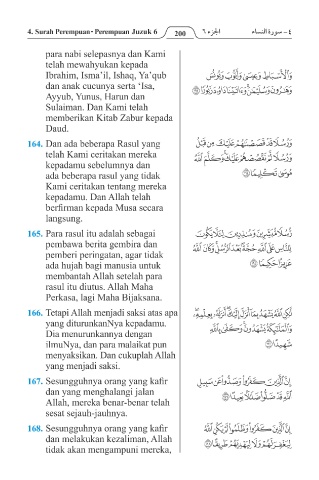 4. Surah Perempuan • Perempuan Juzuk 6
200
الجزء ٦
٤ - سورة النساء
para nabi selepasnya dan Kami
telah mewahyukan kepada
Ibrahim, Isma'il, Ishaq, Ya'qub
dan anak cucunya serta 'Isa,
Ayyub, Yunus, Harun dan
Sulaiman. Dan Kami telah
memberikan Kitab Zabur kepada
Daud.
وَٱلْأَسْبَاطِ وَعِيسَىٰ وَأَيُّوبَ وَيُونُسَ
وَهَٰرُونَ وَسُلَيْمَٰنَ وَءَاتَيْنَا دَاوُۥدَ زَبُورًا
164. Dan ada beberapa Rasul yang
telah Kami ceritakan mereka
kepadamu sebelumnya dan
ada beberapa rasul yang tidak
Kami ceritakan tentang mereka
kepadamu. Dan Allah telah
berfirman kepada Musa secara
langsung.
وَرُسُلًا قَدْ قَصَصْنَٰهُمْ عَلَيْكَ مِن قَبْلُ
وَرُسُلًا لَّمْ نَقْصُصْهُمْ عَلَيْكَ وَكَلَّمَ ٱللَّهُ
مُوسَىٰ تَكْلِيمًا
165. Para rasul itu adalah sebagai
pembawa berita gembira dan
pemberi peringatan, agar tidak
ada hujah bagi manusia untuk
membantah Allah setelah para
rasul itu diutus. Allah Maha
Perkasa, lagi Maha Bijaksana.
رُّسُلًا مُّبَشِّرِينَ وَمُنذِرِينَ لِئَلَّا يَكُونَ
لِلنَّاسِ عَلَى ٱللَّهِ حُجَّةٌۢ بَعْدَ ٱلرُّسُلِ وَكَانَ ٱللَّهُ
عَزِيزًا حَكِيمًا
166. Tetapi Allah menjadi saksi atas apa
yang diturunkanNya kepadamu.
Dia menurunkannya dengan
ilmuNya, dan para malaikat pun
menyaksikan. Dan cukuplah Allah
yang menjadi saksi.
لَّٰكِنِ ٱللَّهُ يَشْهَدُ بِمَآ أَنزَلَ إِلَيْكَ أَنزَلَهُۥ بِعِلْمِهِۦ
وَٱلْمَلَٰٓئِكَةُ يَشْهَدُونَ وَكَفَىٰ بِٱللَّهِ
شَهِيدًا
167. Sesungguhnya orang yang kafir
dan yang menghalangi jalan
Allah, mereka benar-benar telah
sesat sejauh-jauhnya.
إِنَّ ٱلَّذِينَ كَفَرُوا۟ وَصَدُّوا۟ عَن سَبِيلِ
ٱللَّهِ قَدْ ضَلُّوا۟ ضَلَٰلًۢا بَعِيدًا
168. Sesungguhnya orang yang kafir
dan melakukan kezaliman, Allah
tidak akan mengampuni mereka,
إِنَّ ٱلَّذِينَ كَفَرُوا۟ وَظَلَمُوا۟ لَمْ يَكُنِ ٱللَّهُ
لِيَغْفِرَ لَهُمْ وَلَا لِيَهْدِيَهُمْ طَرِيقًا